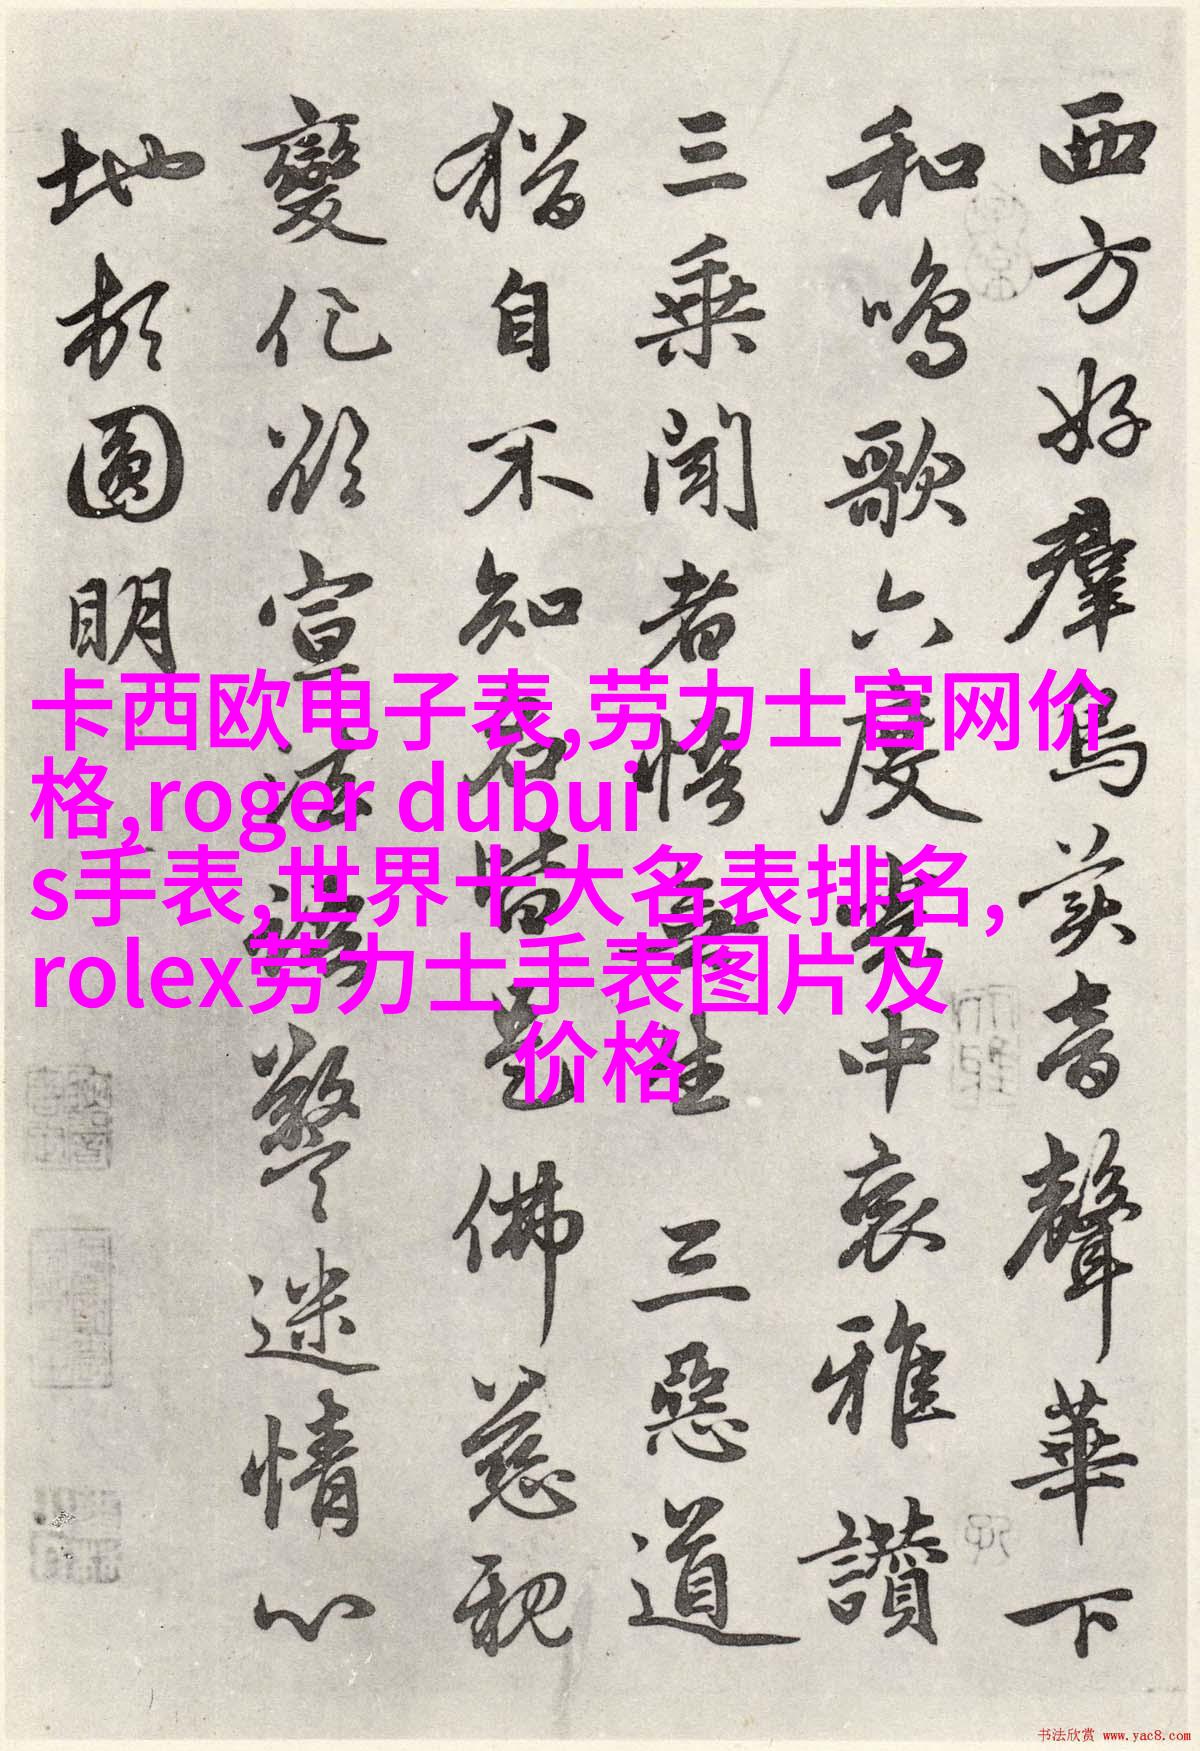 西方好群鳥美音聲華下
和鳴歌六度中哀雅讚
三乘聞者悟無生三惡道
猶自不知名皆是佛慈親
變化欲宣法警迷情心
地頓圓明
卡西欧电子表,劳力士官网价
格,roger dubui
s手表,世界十大名表排名,
rolex劳力士手表图片及
价格
书法欣赏 www.yac8.com